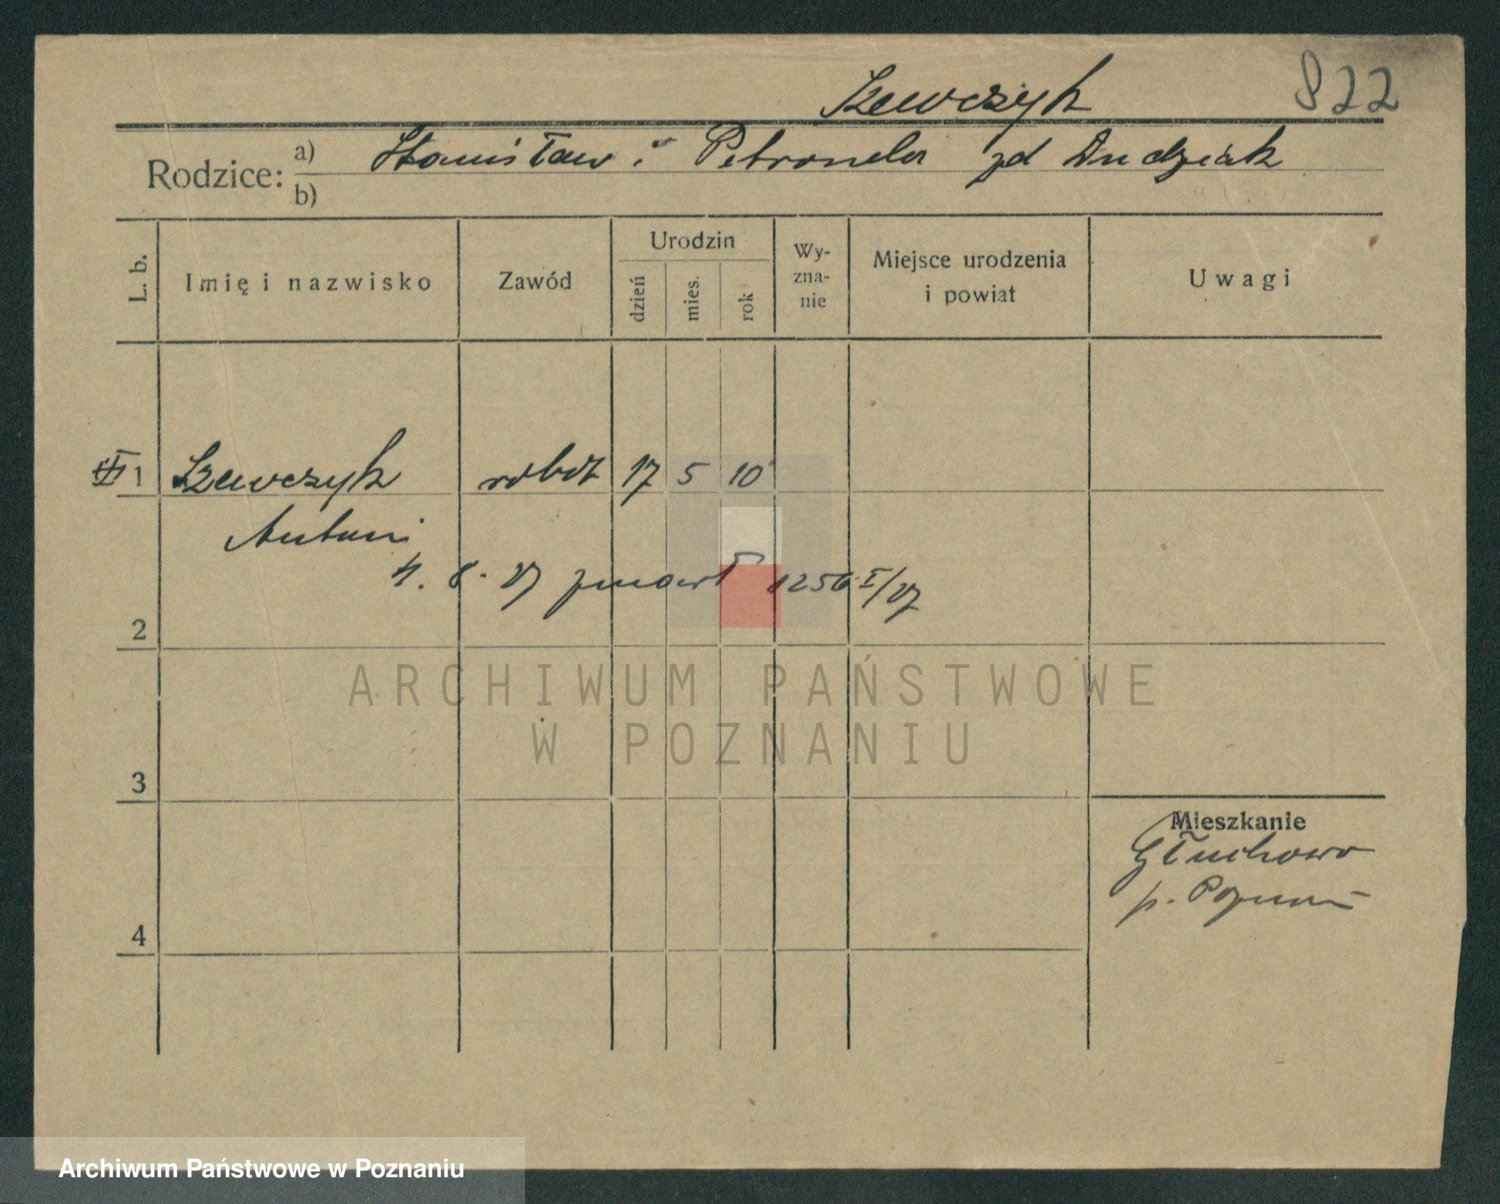 Szewczyk 822
Rodzice: a) Stanisław i Petronela zd Dudziak
b)
L. b. Imię i nazwisko Zawód Urodzin dzień mies. rok Wy-zna-nie Miejsce urodzenia i powiat Uwagi
1 Szewczyk robot 17 5 10
Antoni
4. 8. 27 zmarł 1256 I/27
2
ARCHIWUM PAŃSTWOWE
W POZNANIU
3
Mieszkanie
Głuchowo
p. Poznań
4
Archiwum Państwowe w Poznaniu